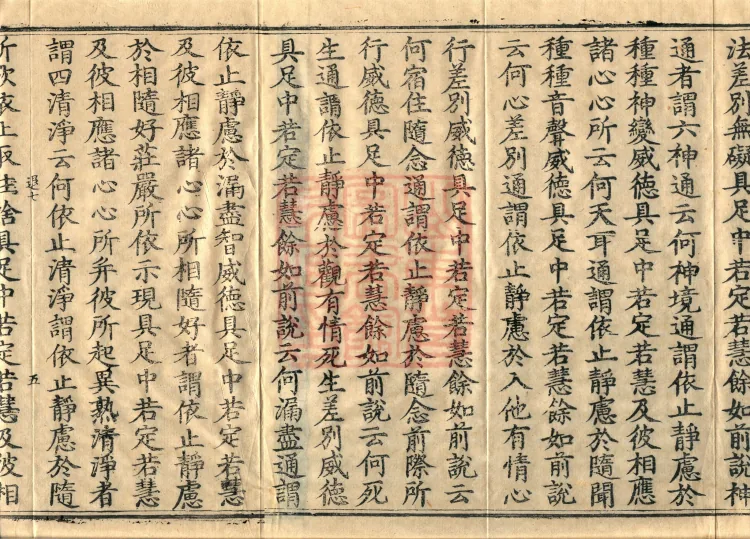 法差別無礙具足中若定若慧餘如前說神
通者謂六神通云何神境通謂依止靜慮於
種種神變威德具足中若定若慧及彼相應
諸心心所云何天耳通謂依止靜慮於隨聞
種種音聲威德具足中若定若慧餘如前說
云何心差別通謂依止靜慮於入他有情心
行差別威德具足中若定若慧餘如前說云
何宿住隨念通謂依止靜慮於隨念前際所
行威德具足中若定若慧餘如前說云何死
生通謂依止靜慮於觀有情死生差別威德
具足中若定若慧餘如前說云何漏盡通謂
依止靜慮於漏盡智威德具足中若定若慧
及彼相應諸心心所相隨好者謂依止靜慮
於相隨好莊嚴所依示現具足中若定若慧
及彼相應諸心心所并彼所起異熟清淨者
謂四清淨云何依止清淨謂依止靜慮於隨
退七 五
所欲依止取住捨具足中若定若慧及彼相